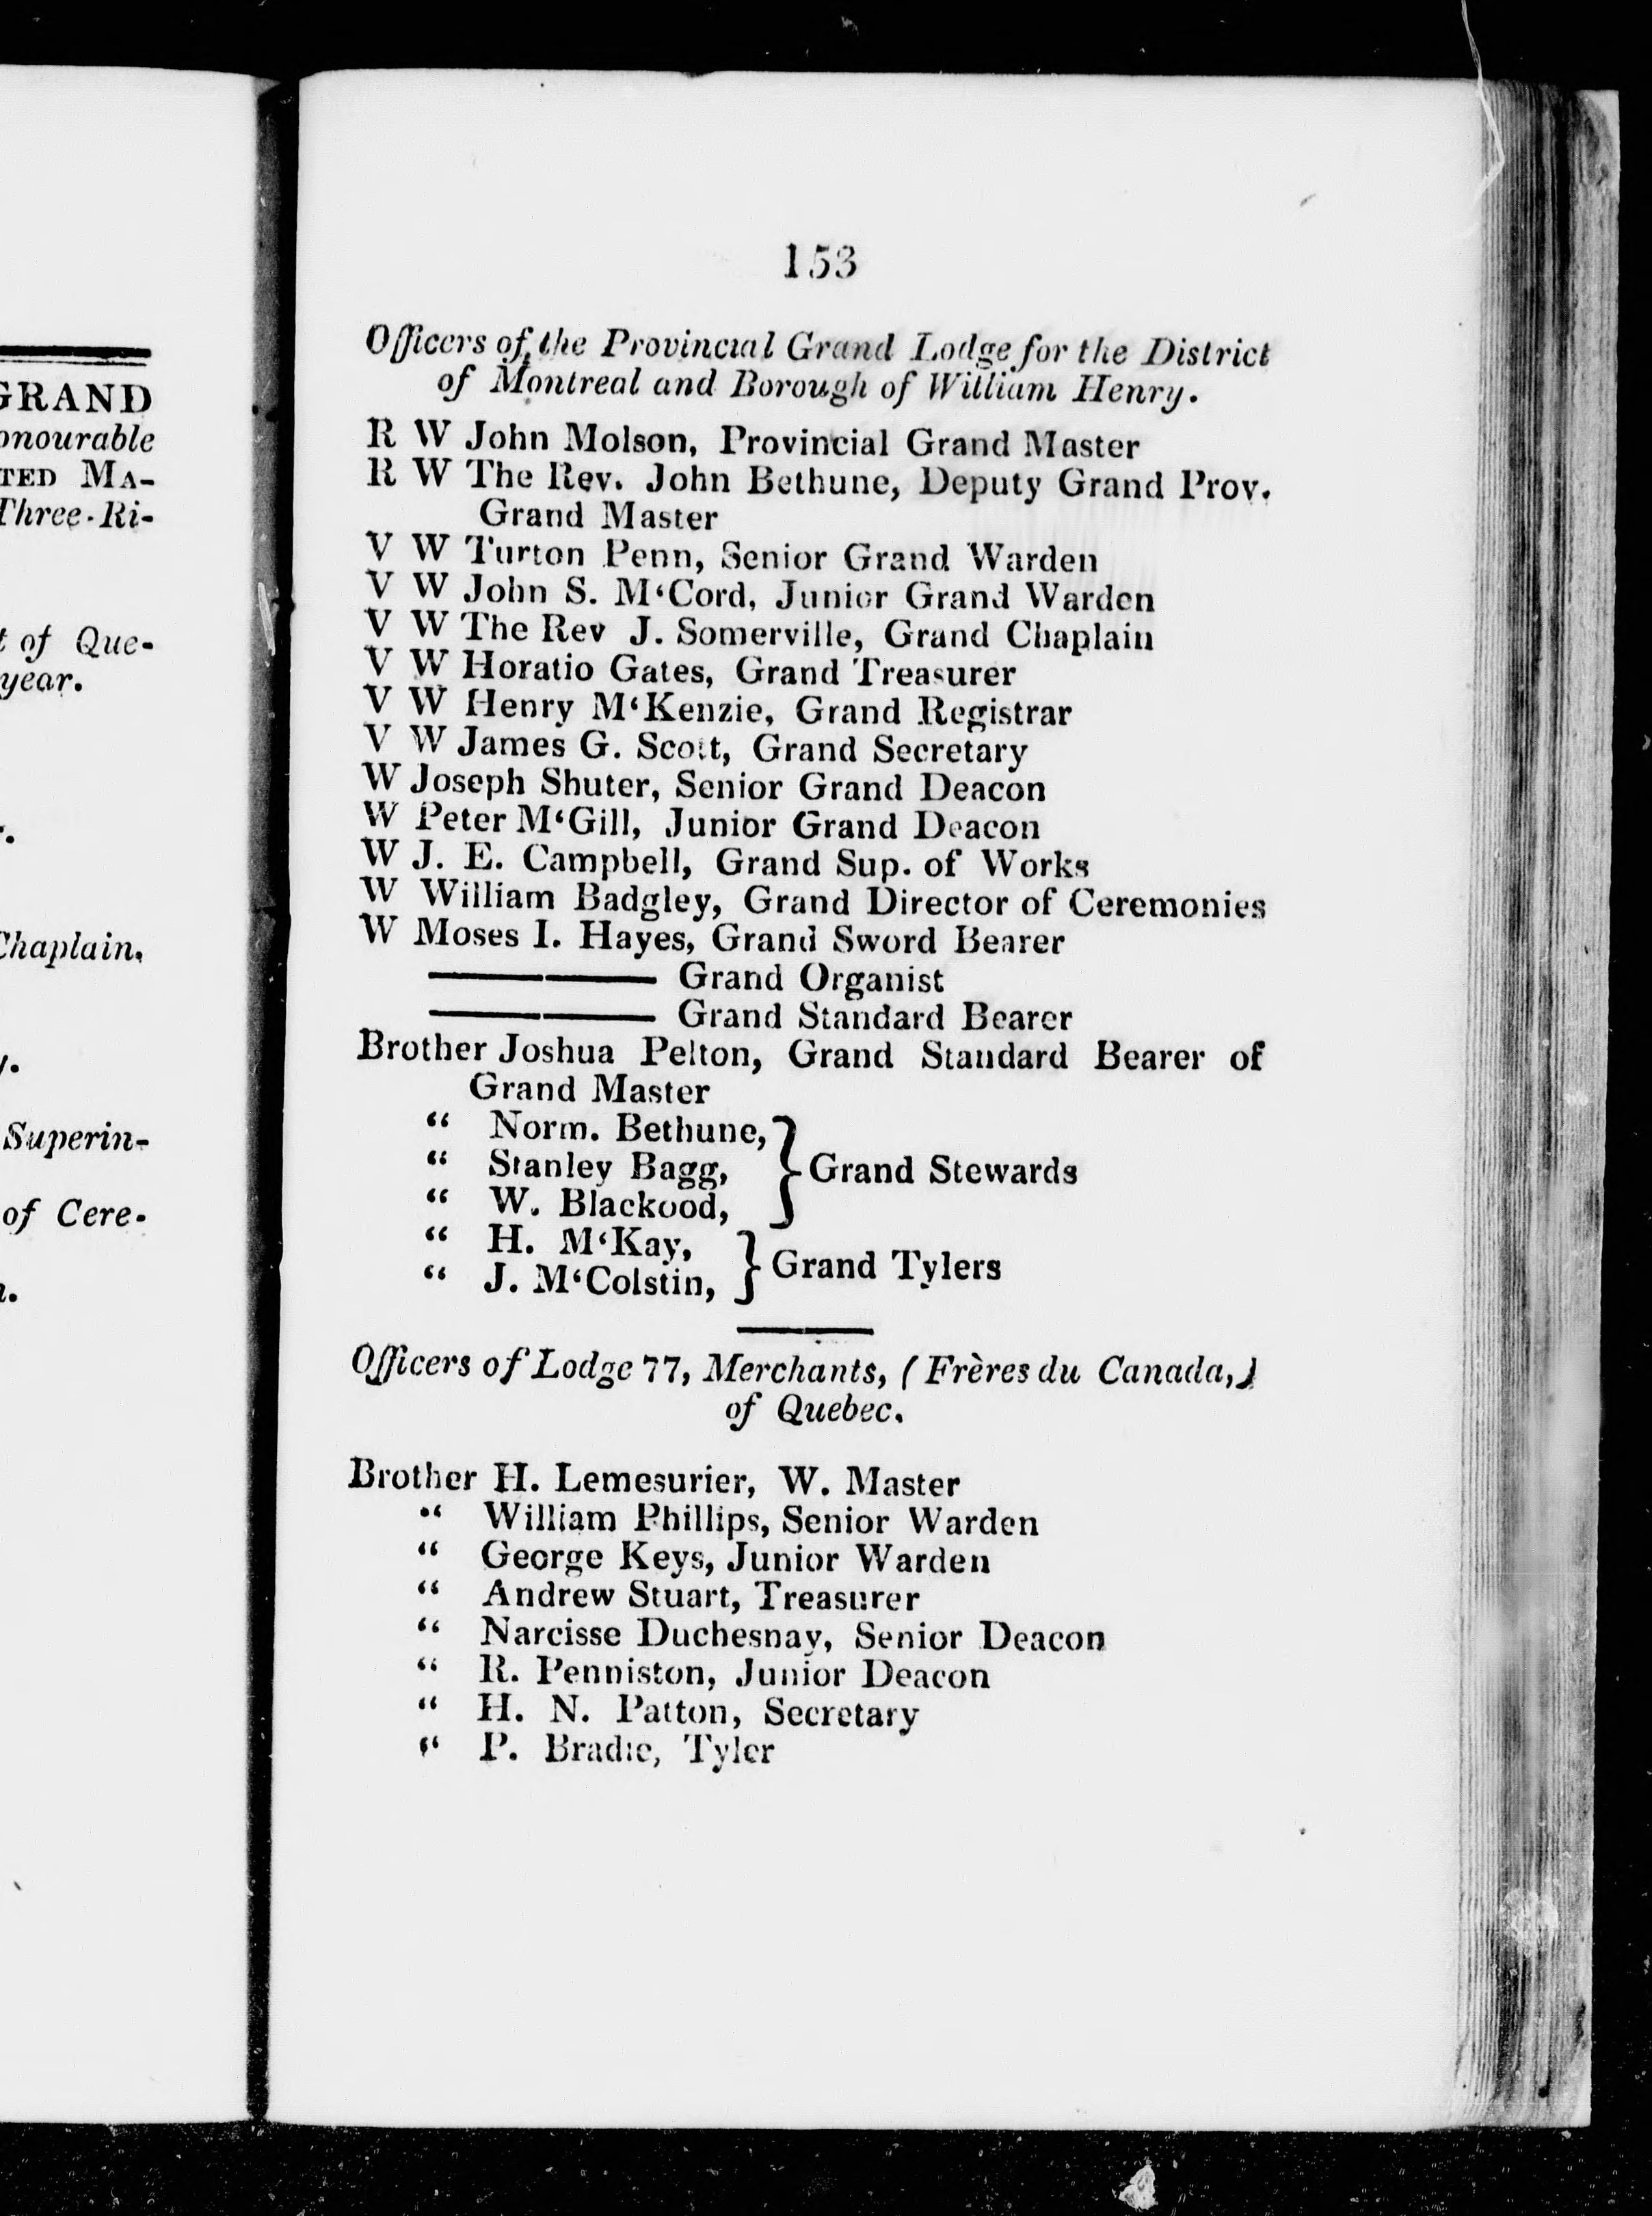 GRAND
onourable
TED MA-
Three-Ri-
t of Que-
year.
Chaplain.
Superin-
of Cere-
153
Officers of the Provincial Grand Lodge for the District
of Montreal and Borough of William Henry.
R W John Molson, Provincial Grand Master
R W The Rev. John Bethune, Deputy Grand Prov.
Grand Master
V W Turton Penn, Senior Grand Warden
V W John S. M‘Cord, Junior Grand Warden
V W The Rev J. Somerville, Grand Chaplain
V W Horatio Gates, Grand Treasurer
V W Henry M‘Kenzie, Grand Registrar
V W James G. Scott, Grand Secretary
W Joseph Shuter, Senior Grand Deacon
W Peter M‘Gill, Junior Grand Deacon
W J. E. Campbell, Grand Sup. of Works
W William Badgley, Grand Director of Ceremonies
W Moses I. Hayes, Grand Sword Bearer
—— Grand Organist
—— Grand Standard Bearer
Brother Joshua Pelton, Grand Standard Bearer of
Grand Master
“ Norm. Bethune,
“ Stanley Bagg, } Grand Stewards
“ W. Blackood,
“ H. M‘Kay, } Grand Tylers
“ J. M‘Colstin,
Officers of Lodge 77, Merchants, (Frères du Canada,)
of Quebec.
Brother H. Lemesurier, W. Master
“ William Phillips, Senior Warden
“ George Keys, Junior Warden
“ Andrew Stuart, Treasurer
“ Narcisse Duchesnay, Senior Deacon
“ R. Penniston, Junior Deacon
“ H. N. Patton, Secretary
“ P. Bradie, Tyler